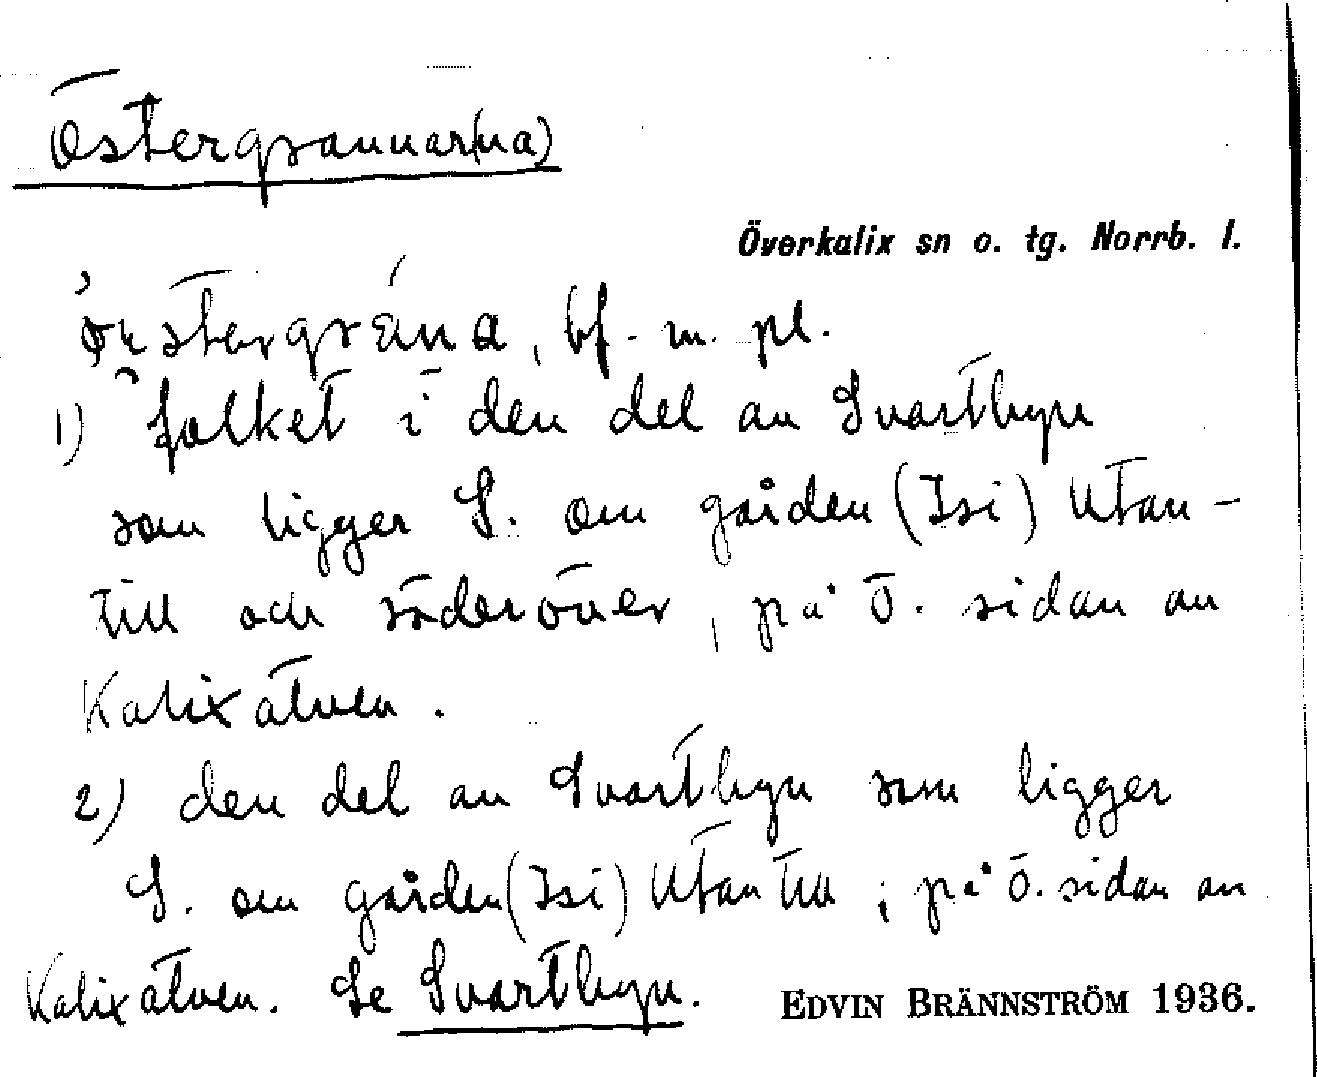 Östergrannar(na)
Överkalix sn o. tg. Norrb. l.
bf. m. pl.
1) folket i den del av Svartbyn
som ligger S. om gården (Isi) Utan-
till och söderöver, på Ö. sidan av
Kalixälven.
2) den del av Svartbyn som ligger
S. om gården (Isi) Utantill, på Ö. sidan av
Kalixälven. Se Svartbyn. EDVIN BRÄNNSTRÖM 1936.